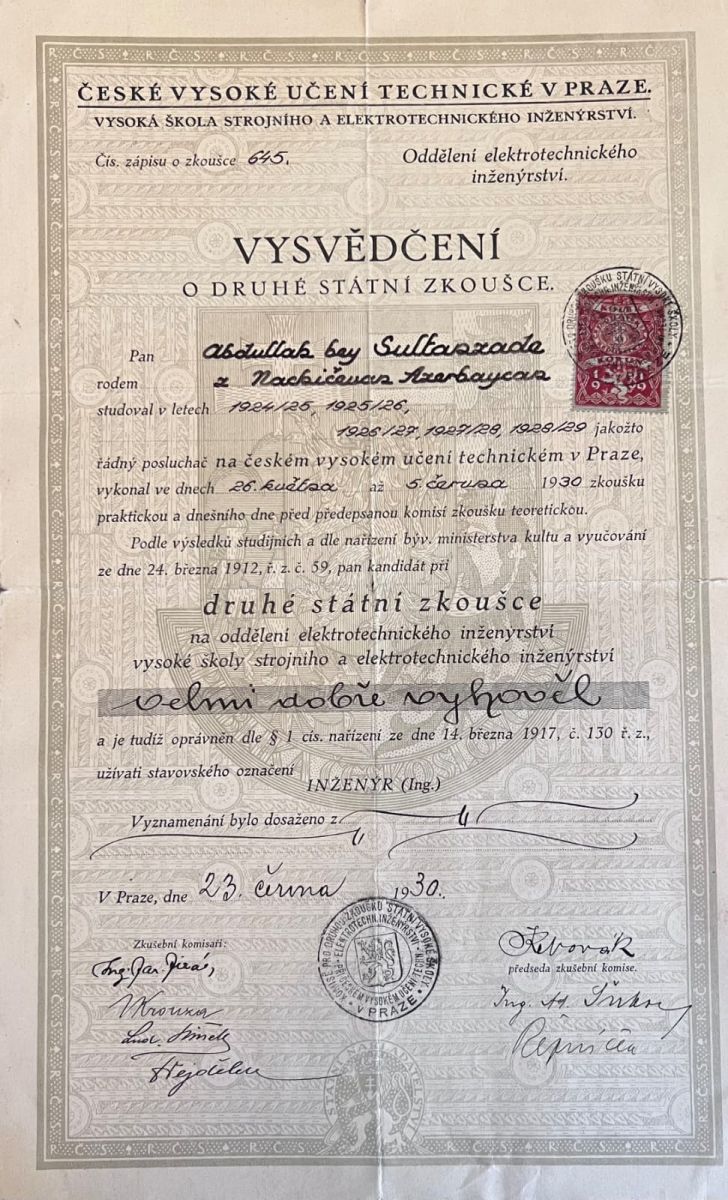 ČESKÉ VYSOKÉ UČENÍ TECHNICKÉ V PRAZE.
VYSOKÁ ŠKOLA STROJNÍHO A ELEKTROTECHNICKÉHO INŽENÝRSTVÍ.
Čís. zápisu o zkoušce 645.
Oddělení elektrotechnického
inženýrství.
VYSVĚDČENÍ
O DRUHÉ STÁTNÍ ZKOUŠCE.
Pan Abdullah bey Sultanzade
rodem z Nachičevan Azerbaycan
studoval v letech 1924/25, 1925/26,
1926/27, 1927/28, 1928/29 jakožto
řádný posluchač na českém vysokém učení technickém v Praze,
vykonal ve dnech 26. května až 5. června 1930 zkoušku
praktickou a dnešního dne před předepsanou komisí zkoušku teoretickou.
Podle výsledků studijních a dle nařízení býv. ministerstva kultu a vyučování
ze dne 24. března 1912, ř. z. č. 59, pan kandidát při
druhé státní zkoušce
na oddělení elektrotechnického inženyrství
vysoké školy strojního a elektrotechnického inženýrství
velmi dobře vyhověl
a je tudíž oprávněn dle § 1 cis. nařízení ze dne 14. března 1917, č. 130 ř. z.,
užívati stavovského označení
INŽENÝR (Ing.)
Vyznamenání bylo dosaženo z
V Praze, dne 23. června 1930.
Zkušební komisaři:
předseda zkušební komise.
KOMISE PRO DRUHOU ZKOUŠKU STÁTNÍ VYSOKÉ ŠKOLY
ELEKTROTECHN. INŽENÝRSTVÍ
PŘI ČESKÉM VYSOKÉM UČENÍ TECHN.
V PRAZE